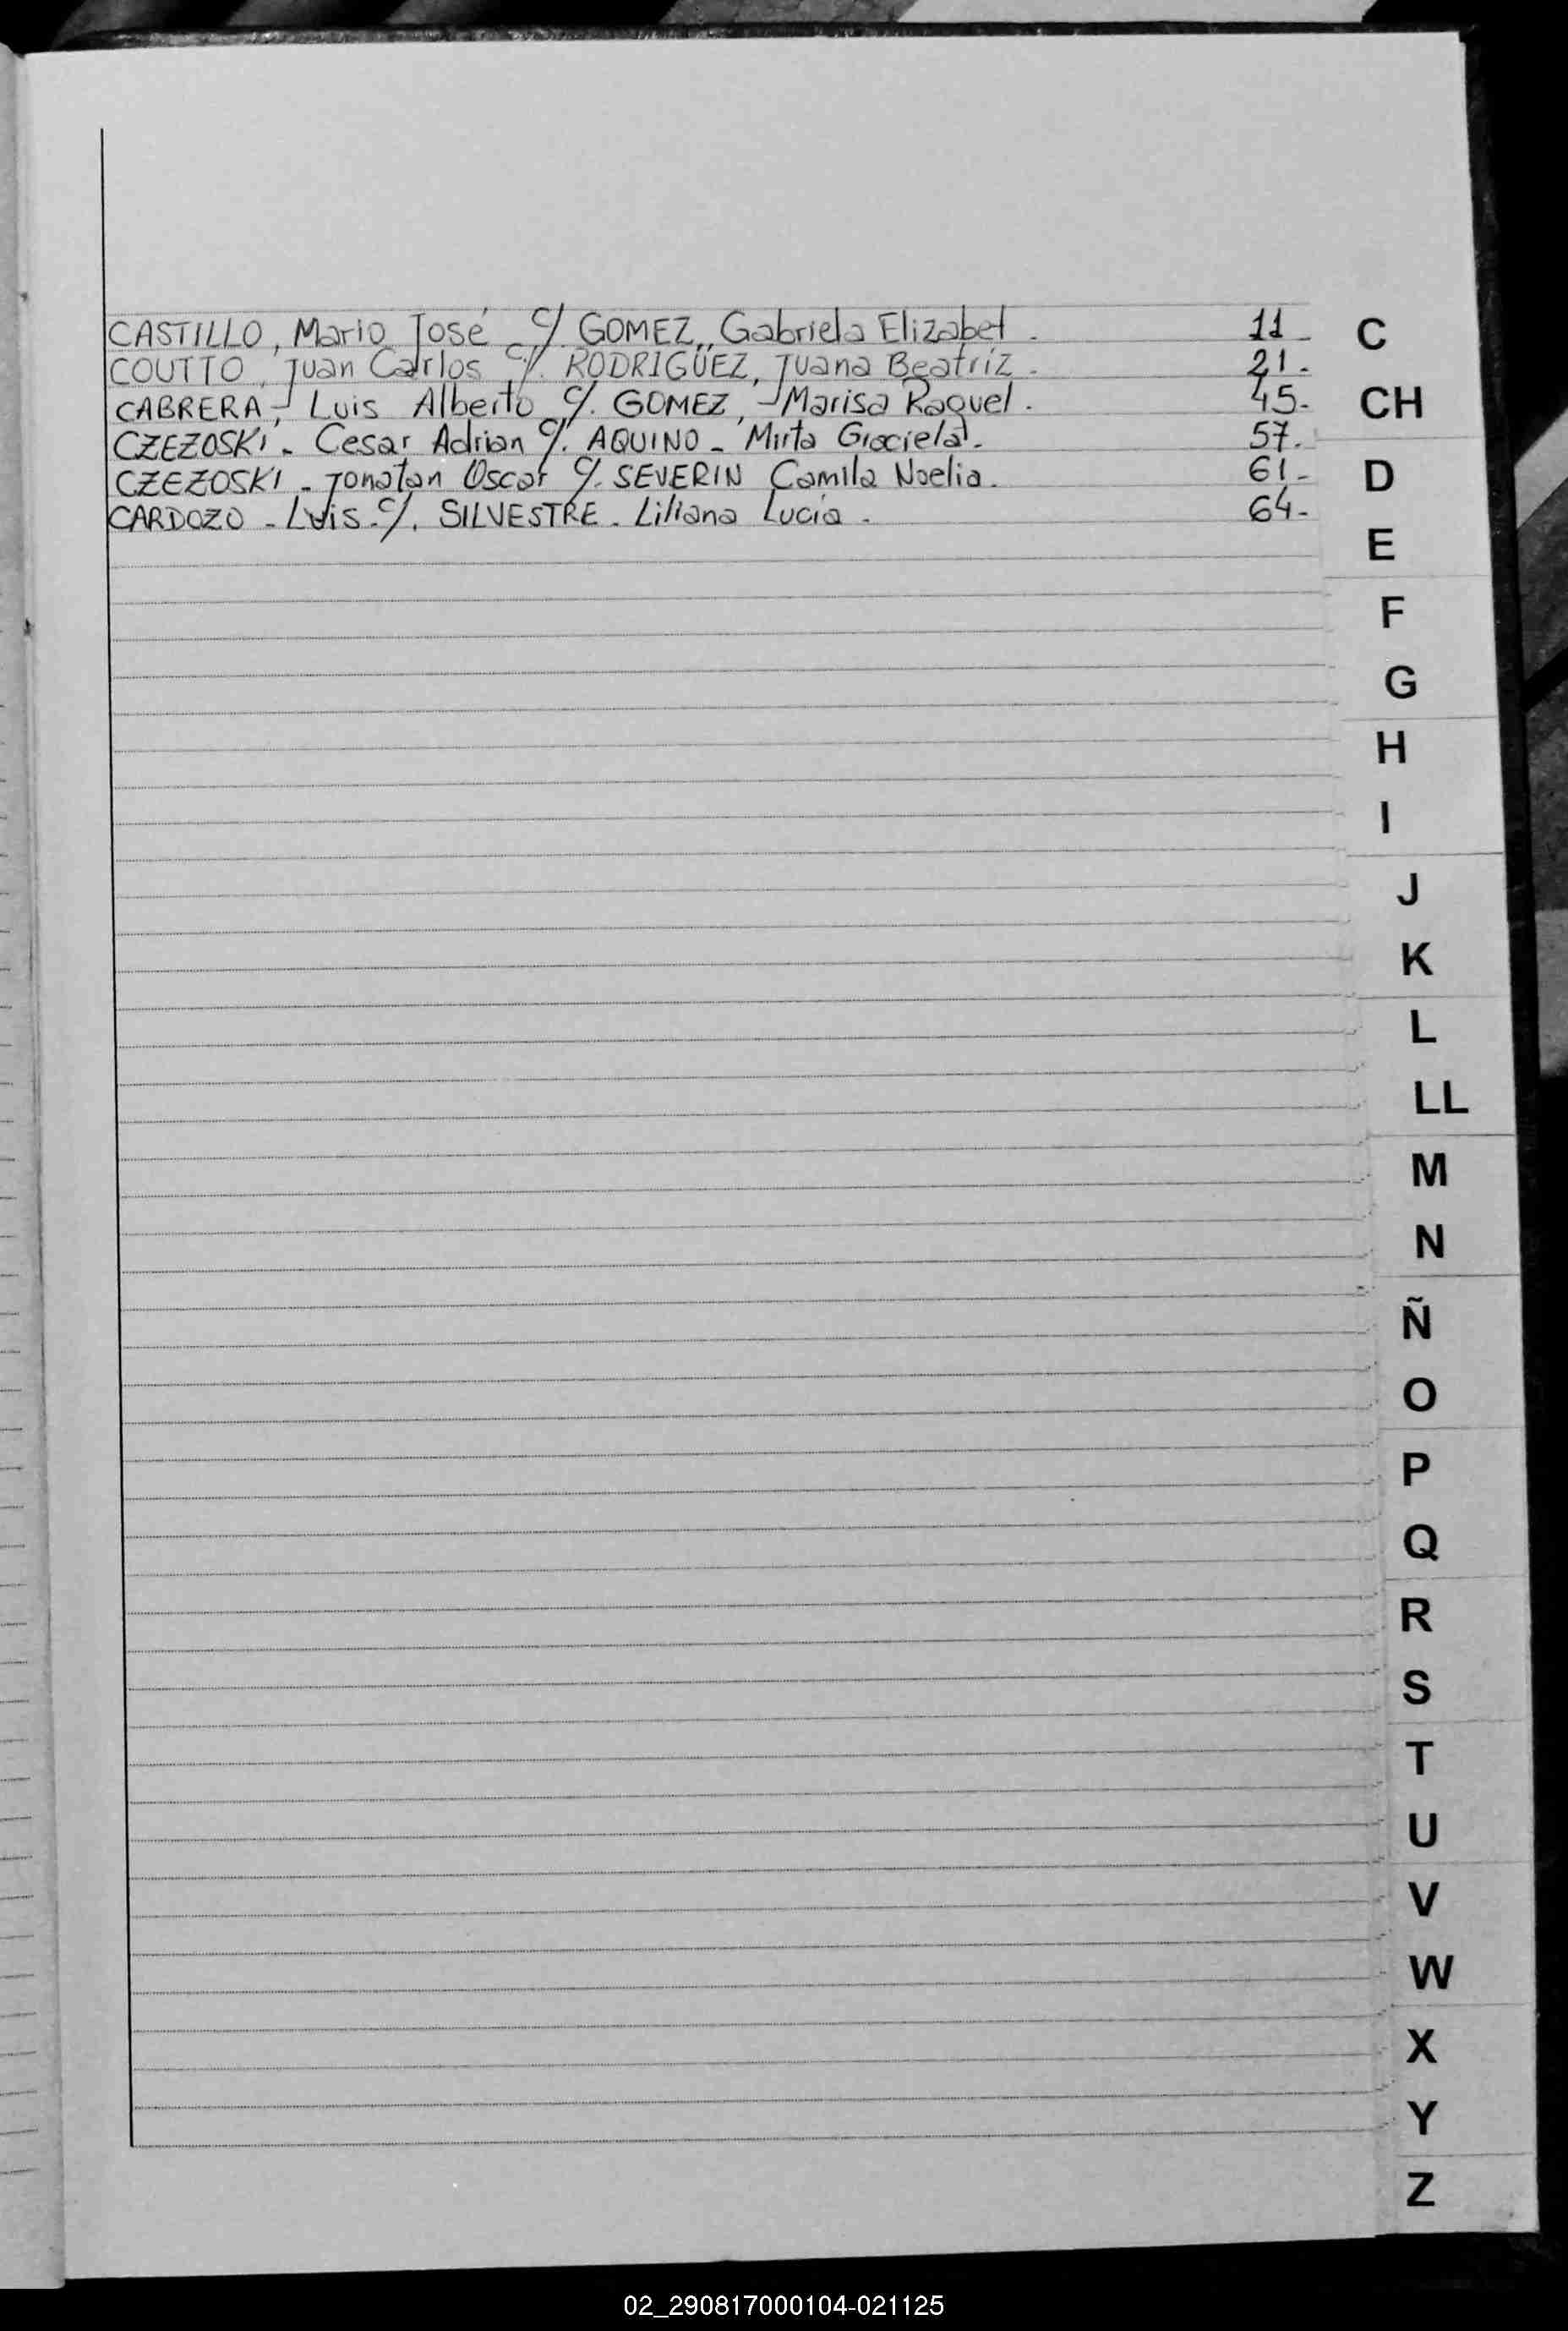 CASTILLO, Mario José C/. GOMEZ, Gabriela Elizabet. 11-
COUTTO, Juan Carlos C/. RODRIGUEZ, Juana Beatríz. 21.
CABRERA, Luis Alberto C/. GOMEZ, Marisa Raquel. 45-
CZEZOSKI. Cesar Adrian C/. AQUINO - Mirta Graciela. 57.
CZEZOSKI - Jonatan Oscar C/. SEVERIN Camila Noelia. 61-
CARDOZO - Luis - C/. SILVESTRE - Liliana Lucía - 64-
C
CH
D
E
F
G
H
I
J
K
L
LL
M
N
Ñ
O
P
Q
R
S
T
U
V
W
X
Y
Z
02_290817000104-021125